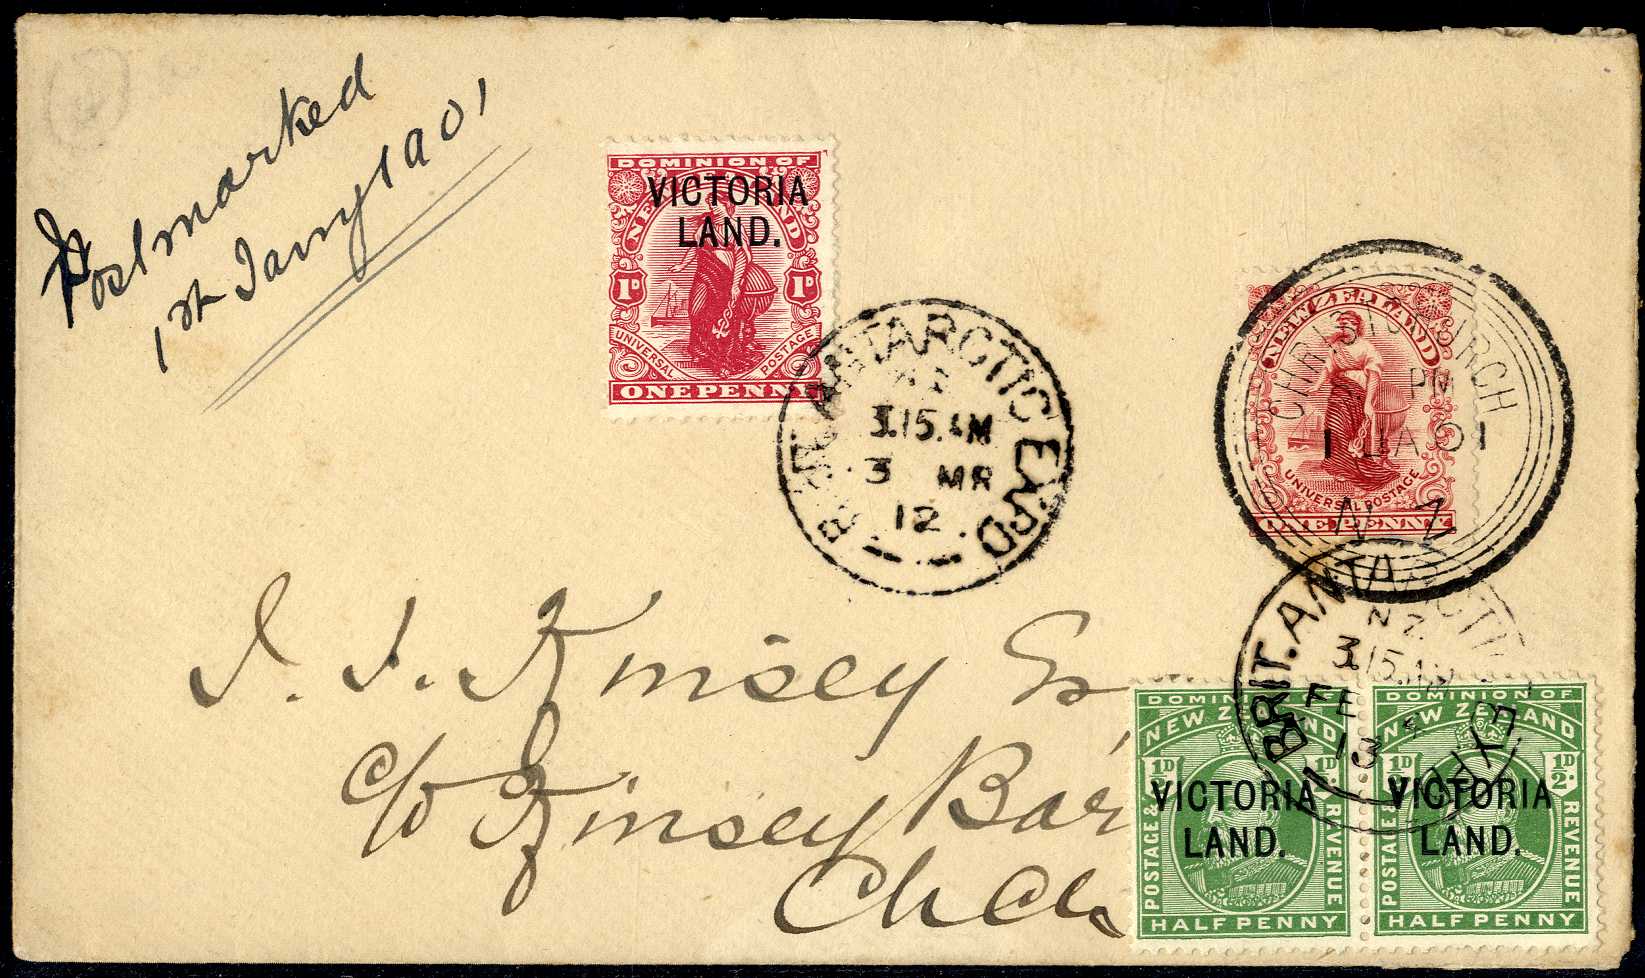 Postmarked
1st Janry 1901
DOMINION OF
NEW ZEALAND
VICTORIA
LAND.
1D 1D
UNIVERSAL POSTAGE
ONE PENNY
BRIT. ANTARCTIC EXPD
3.15 AM
3 MR
12
NEW ZEALAND
UNIVERSAL POSTAGE
ONE PENNY
CHRISTCHURCH
PM
1 JA 01
N Z
BRIT. ANTARCTIC EXPD
N Z
3.15 AM
FE
13
J. J. Kinsey Es
c/o Kinsey Bar
ChCh
DOMINION OF
NEW ZEALAND
½D ½D
VICTORIA
LAND.
POSTAGE & REVENUE
HALF PENNY
DOMINION OF
NEW ZEALAND
½D ½D
VICTORIA
LAND.
POSTAGE & REVENUE
HALF PENNY